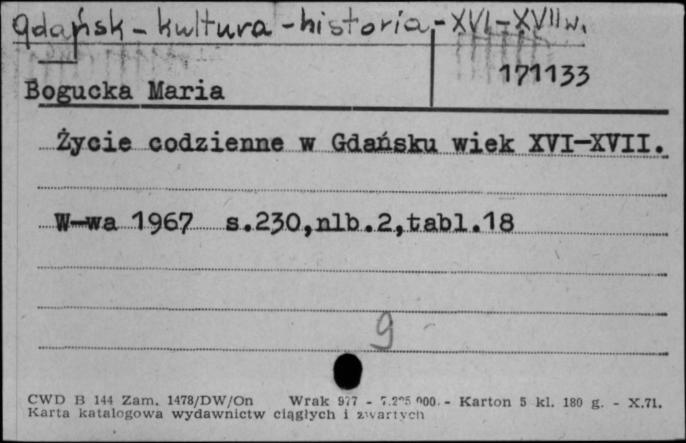 Gdańsk - kultura - historia - XVI-XVII w.
171133
Bogucka Maria
Życie codzienne w Gdańsku wiek XVI-XVII.
W-wa 1967 s.230,nlb.2,tabl.18
9
CWD B 144 Zam. 1478/DW/On Wrak 977 - 7.225 000 - Karton 5 kl. 180 g. - X.71.
Karta katalogowa wydawnictw ciągłych i zwartych